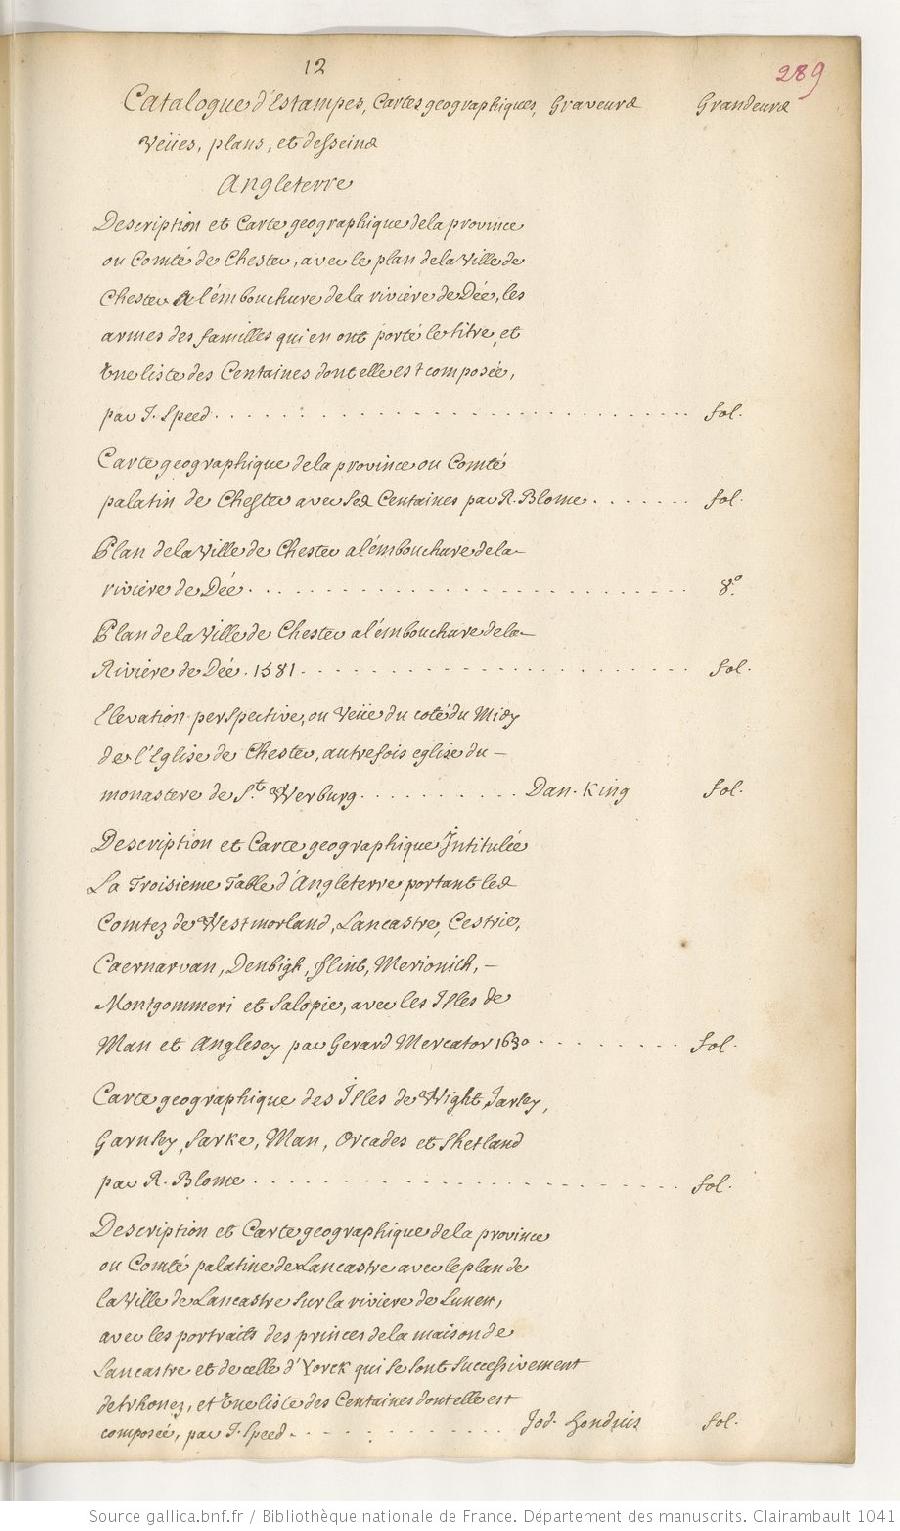 12
289
Catalogue d'Estampes, Cartes geographiques, Graveurs Grandeurs
Veües, plans, et desseins
Angleterre
Description et Carte geographique de la province
ou Comté de Chester, avec le plan de la Ville de
Chester a l'émbouchure de la riviére de Dée, les
armes des familles qui en ont porté le titre, et
Une liste des Centaines dont elle est composée,
par J. Speed. . . . . . . . . . fol.
Carte geographique de la province ou Comté
palatin de Chester avec Ses Centaines par R. Blome . . . . . . fol.
Plan de la Ville de Chester a l'émbouchure de la
riviére de Dée. . . . . . . . . . 8.°
Plan de la Ville de Chester a l'émbouchure de la
Riviére de Dée. 1581. . . . . . . . . . fol.
Elevation perspective, ou Veüe du coté du Midy
de l'Eglise de Chester, autrefois eglise du
monastere de S.t Werburg. . . . . . . . . . Dan. King fol.
Description et Carte geographique Intitulée
La Troisieme Table d'Angleterre portant les
Comtez de Westmorland, Lancastre, Cestrie,
Caernarvan, Denbigh, flint, Merionich,
Montgommeri et Salopie, avec les Isles de
Man et Anglesey par Gerard Mercator 1630 . . . . . . . . fol.
Carte geographique des Isles de Wight, Jarsey,
Garnsey, Sarke, Man, Orcades et Shetland
par R. Blome . . . . . . . . . . fol.
Description et Carte geographique de la province
ou Comté palatine de Lancastre avec le plan de
la Ville de Lancastre Sur la riviere de Lunen,
avec les portraits des princes de la maison de
Lancastre et de celle d'Yorck qui Se Sont Successivement
detrhonez, et Une liste des Centaines dont elle est
composée, par J. Speed. . . . . . . . . . Jod. Hondius fol.
Source gallica.bnf.fr / Bibliothèque nationale de France. Département des manuscrits. Clairambault 1041